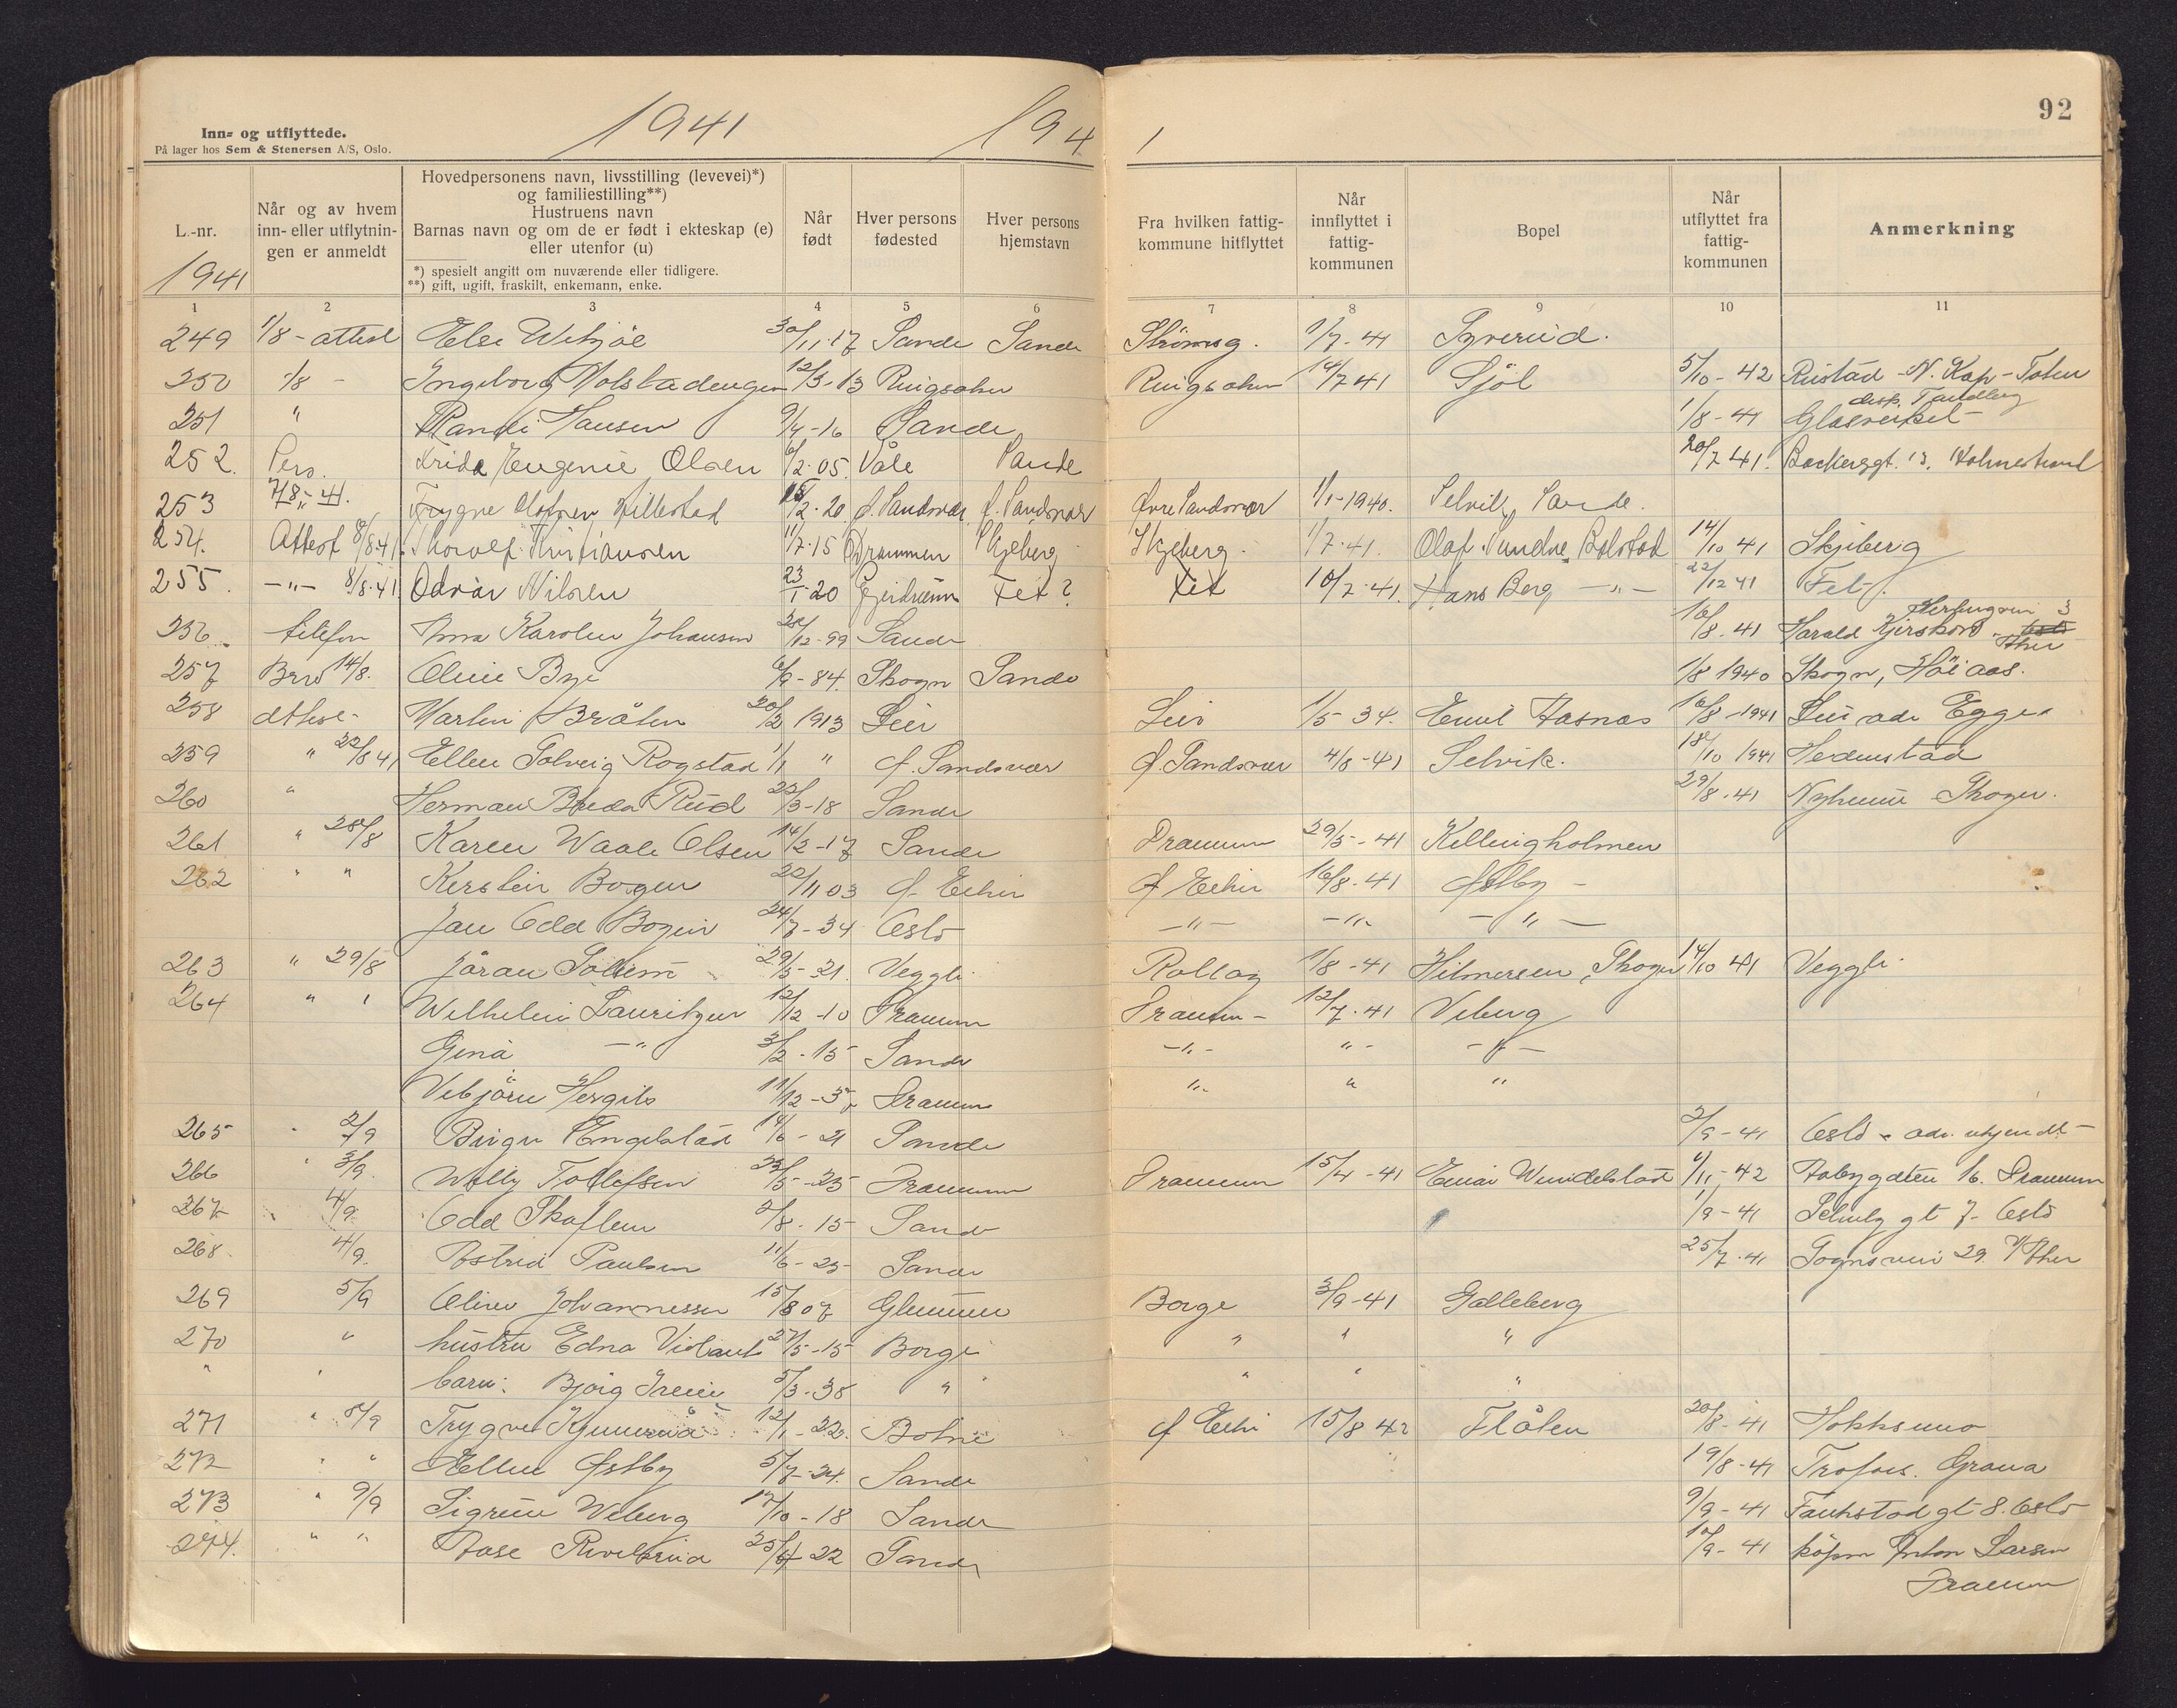 92
1941 194 1
Inn- og utflyttede.
På lager hos Sem & Stenersen A/S, Oslo.
L.-nr.
1941
Når og av hvem inn- eller utflytningen er anmeldt
Hovedpersonens navn, livsstilling (levevei)*) og familiestilling**)
Hustruens navn
Barnas navn og om de er født i ekteskap (e) eller utenfor (u)
*) spesielt angitt om nuværende eller tidligere.
**) gift, ugift, fraskilt, enkemann, enke.
Når født
Hver persons fødested
Hver persons hjemstavn
Fra hvilken fattigkommune hitflyttet
Når innflyttet i fattigkommunen
Bopel
Når utflyttet fra fattigkommunen
Anmerkning
1 2 3 4 5 6 7 8 9 10 11
249 1/8 - attest Else 30/11-17 Sande Sande Strømsg. 1/7-41
250 1/8 - Ingeborg 12/3-13 Ringsaker Ringsaker 14/7 41 5/10-42 Rustad - N. Kap - Toten
251 " Randi Hansen 9/4-16 Sande 1/8-41 Glasverket
252. Pers. Frida Eugenie Olsen 6/2-05. Våle Sande 20/7 41. Holmestrand
253 7/8-41. Trygve Olofsen Hillestad 2-20 Ø. Sandsvær Ø. Sandsvær Øvre Sandsvær 1/1-1940. Selvik, Sande.
254. Attest 8/8-41. Thorolf Kristiansen 11/7-15 Drammen Skjeberg Skjeberg 1/7-41. Olaf Sundne Bolstad 14/10 41 Skjeberg
255. -"- 8/8-41. Odvar Nilsen 23/1-20 Gjerdrum Fet? Fet 10/7-41. Hans Berg -"- 22/12 41 Fet.
256 telefon Anna Karoline Johansen 28/12-99 Sande 16/8-41 Harald
257 Brev 14/8. Oline Bye 6/9-84. Skogn Sande 1/8 1940 Skogn, Höiaas.
258 attest- Martin Bråten 20/2 1913 Lier Lier 1/5-34. Emil Aasnæs 16/8-1941 Lier adr Egge
259 " 22/8 41 Ellen Solveig Rogstad 1/1 " Ø. Sandsvær Ø. Sandsvær 4/8-41 Selvik. 18/10 1941 Hedenstad
260 " Herman Rud 22/3-18 Sande 29/8-41 Skoger.
261 " 28/8 Karen Waale Olsen 14/2-17 Sande Drammen 29/5-41 Killingholmen
262 " " Kerstin Bogen 22/11 03 Ø. Eiker Ø Eiker 16/8-41 Østby -
Jan Odd Bogen 24/7-34 Oslo -"- -"- -"-
263 " 29/8 Jöran Solem 29/5-21. Veggli Rollag 1/8-41 Hilmersen, Skoger 14/10 41 Veggli
264 " " Wilhelm Lauritzen 12/12-10 Drammen Drammen - 12/7-41 Viberg
Gina -"- 3/2-15 Sande -"- "- -"-
Vebjörn Hergils 11/12-3 Drammen "- " "
265 " 2/9 Birger Engelstad 14/6-21 Sande 2/9-41 Oslo - adr. ukjendt -
266 " 3/9. Willy Tollefsen 23/5-25 Drammen Drammen 15/4-41 Einar Wundelstad 1/11-42 16. Drammen
267 " 4/9 Odd Skaflem 2/8-15 Sande 1/9-41 Schulz gt 7 - Oslo
268 4/9. Astrid Paulsen 11/6-25 Sande 25/7-41 Sognsvei 29. V/Aker
269 5/9 Oliver Johannessen 15/8 07 Glemmen Borge 3/9-41 Galleberg
270 " hustru Edna 27/5-15 Borge " " "
" " barn: Bjørg Irene 5/3-38 " " " "
271 " 8/9 Trygve 12/1-22. Botne Ø Eiker 15/8 42 Flåten 20/8-41 Hokksund
272 " " Ellen Østby 5/7-24. Sande 19/8-41 Trofors. Grane
273 " 9/9 Sigrun Weberg 17/10-18 Sande 9/9-41 gt 8. Oslo
274. " " Aase 22 Sande 10/9-41 kjøpm Anton Larsen
Drammen